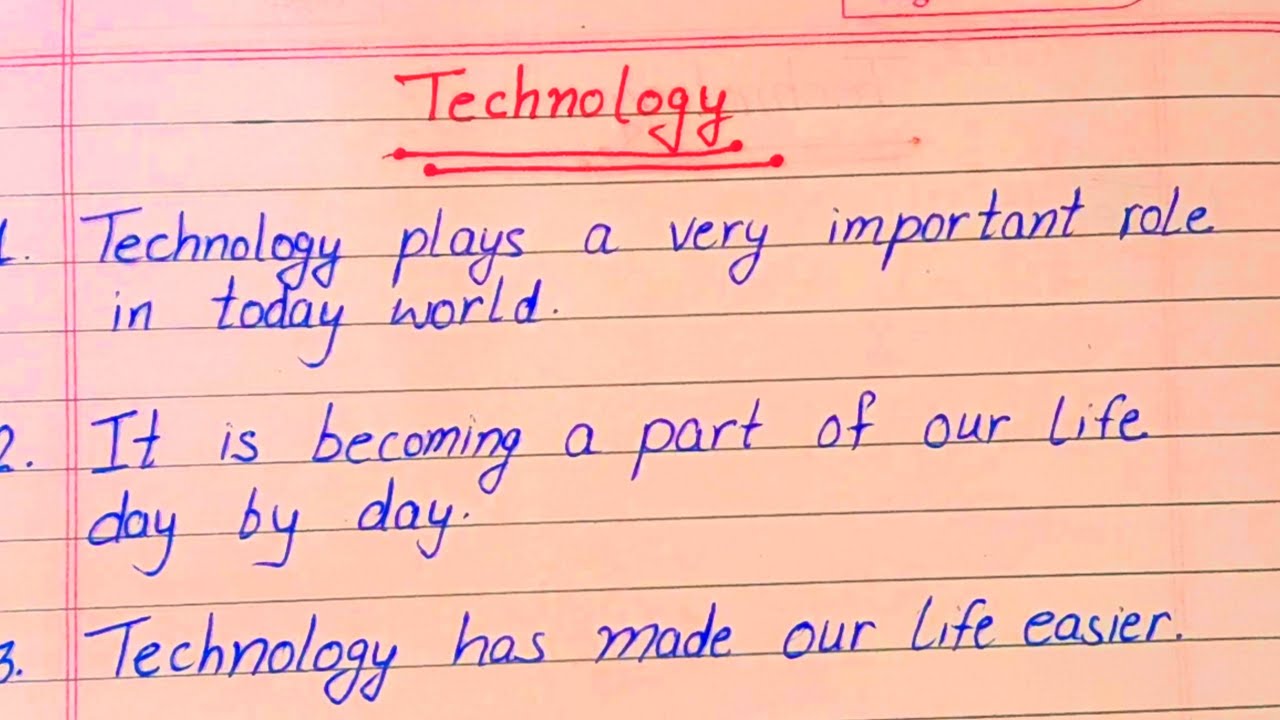 Technology
1. Technology plays a very important role
in today world.
2. It is becoming a part of our life
day by day.
3. Technology has made our life easier.